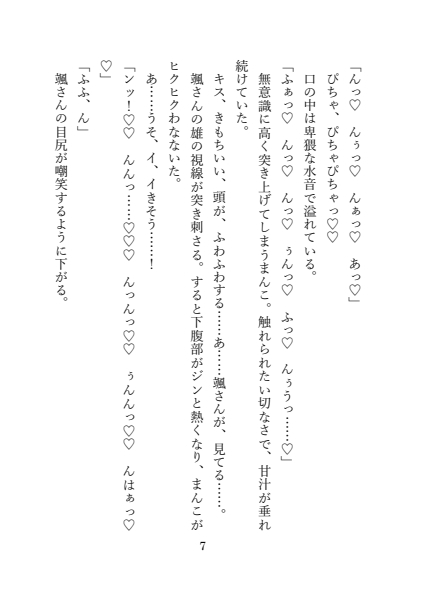 「んっ♡　んぅっ♡　んぁっ♡　あっ♡」
ぴちゃ、ぴちゃぴちゃっ♡♡
口の中は卑猥な水音で溢れている。
「ふぁっ♡　んっ♡　んっ♡　ぅんっ♡　ふっ♡　んぅうっ……♡」
無意識に高く突き上げてしまうまんこ。触れられたい切なさで、甘汁が垂れ
続けていた。
キス、きもちいい、頭が、ふわふわする……あ……颯さんが、見てる……。
颯さんの雄の視線が突き刺さる。すると下腹部がジンと熱くなり、まんこが
ヒクヒクわなないた。
あ……うそ、イ、イきそう……！
「ンッ！♡♡　んんっ……♡♡♡　んっんっ♡♡　ぅんんっ♡♡　んはぁっ♡
♡」
「ふふ、ん」
颯さんの目尻が嘲笑するように下がる。
7